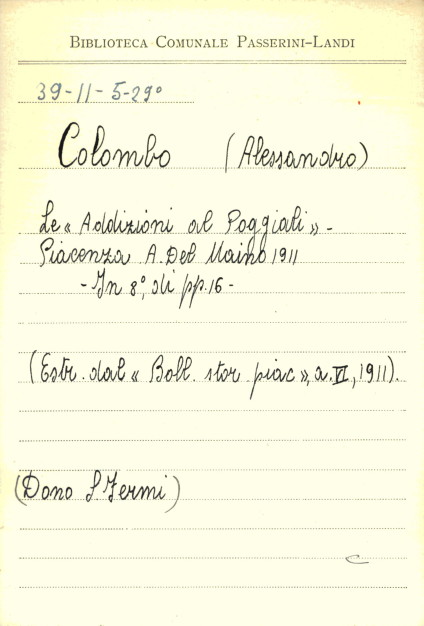 BIBLIOTECA COMUNALE PASSERINI-LANDI
39-11-5-29°
Colombo (Alessandro)
Le « Addizioni al Poggiali » -
Piacenza A. Del Maino 1911
- In 8°, di pp. 16 -
(Estr. dal « Boll. stor. piac », a. VI, 1911).
(Dono S. Fermi)
C